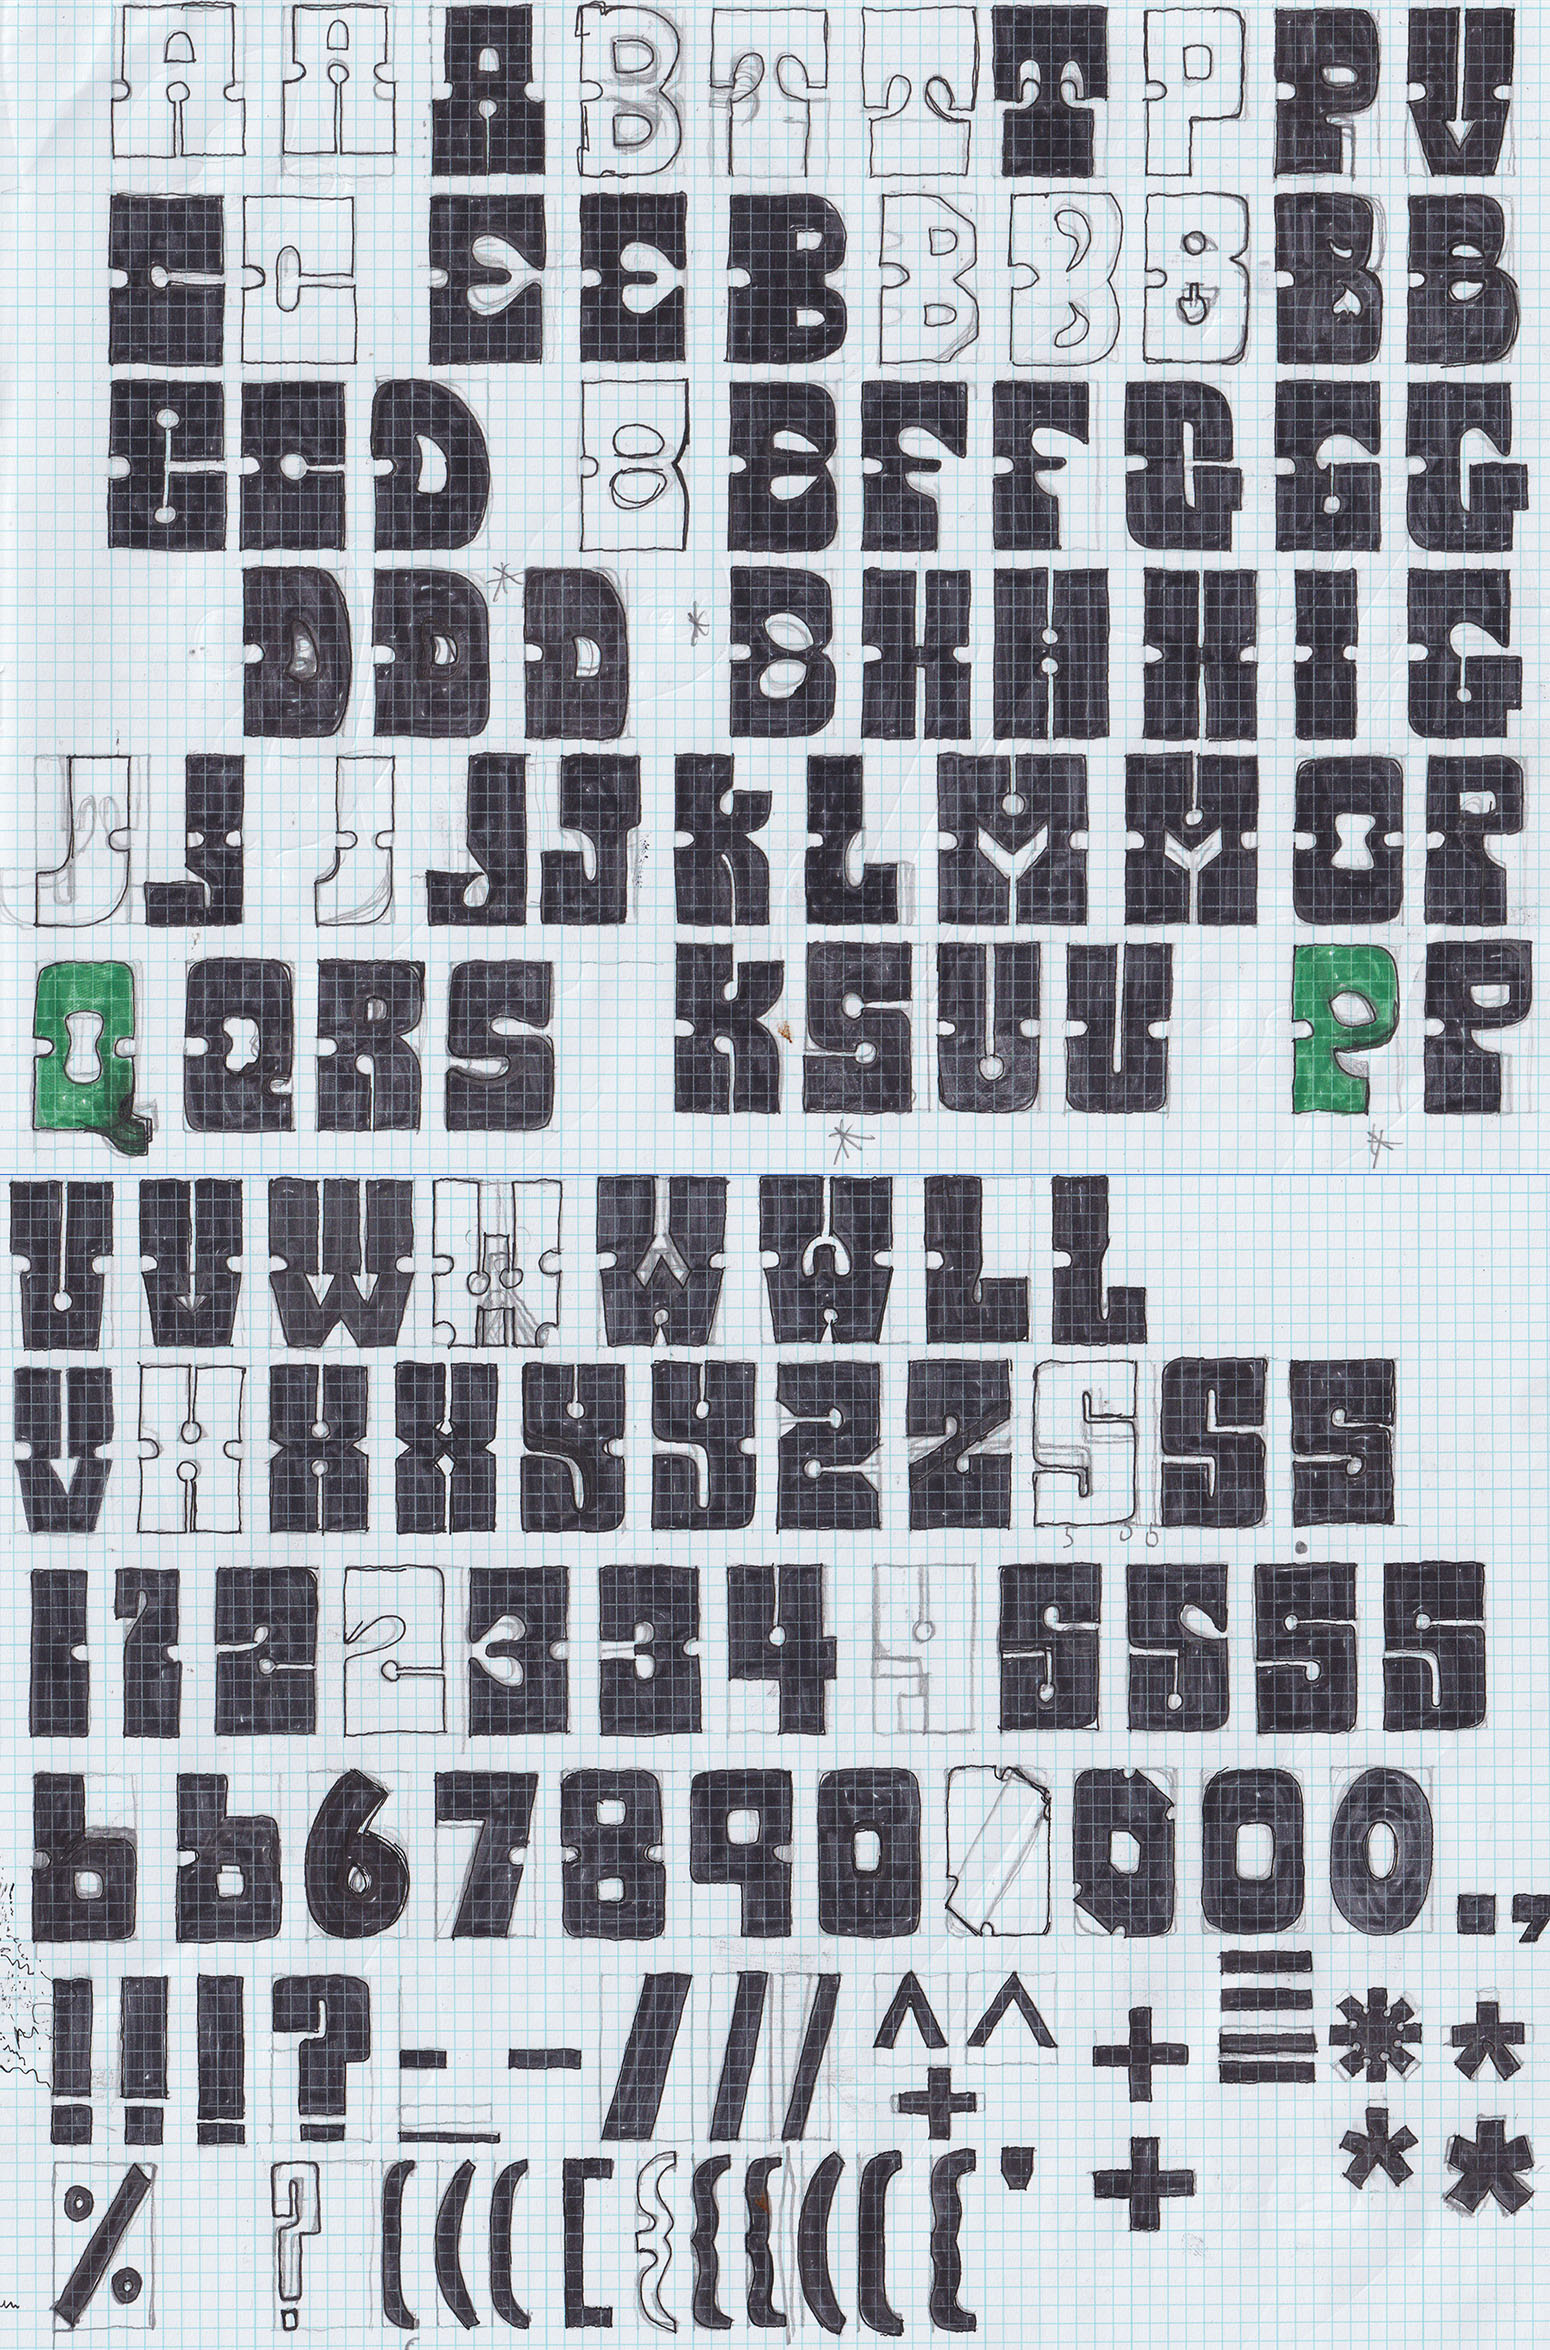 A A A B T T T P P V
C C E E B B B B B B
C C D B B F F G G G
D D * D * B H H H I G
J J J J J K L M M O P
Q Q R S K S U U P P
* *
V V W W W W L L
V X X X Y Y Z Z S S S
1 1 2 2 3 3 4 4 5 5 5 5
6 6 6 7 8 9 0 0 0 0 0 . ,
! ! ! ? - - _ / / / ^ ^ + + = = * *
% ? ( ( ( [ { { { ( ( { ' + * *